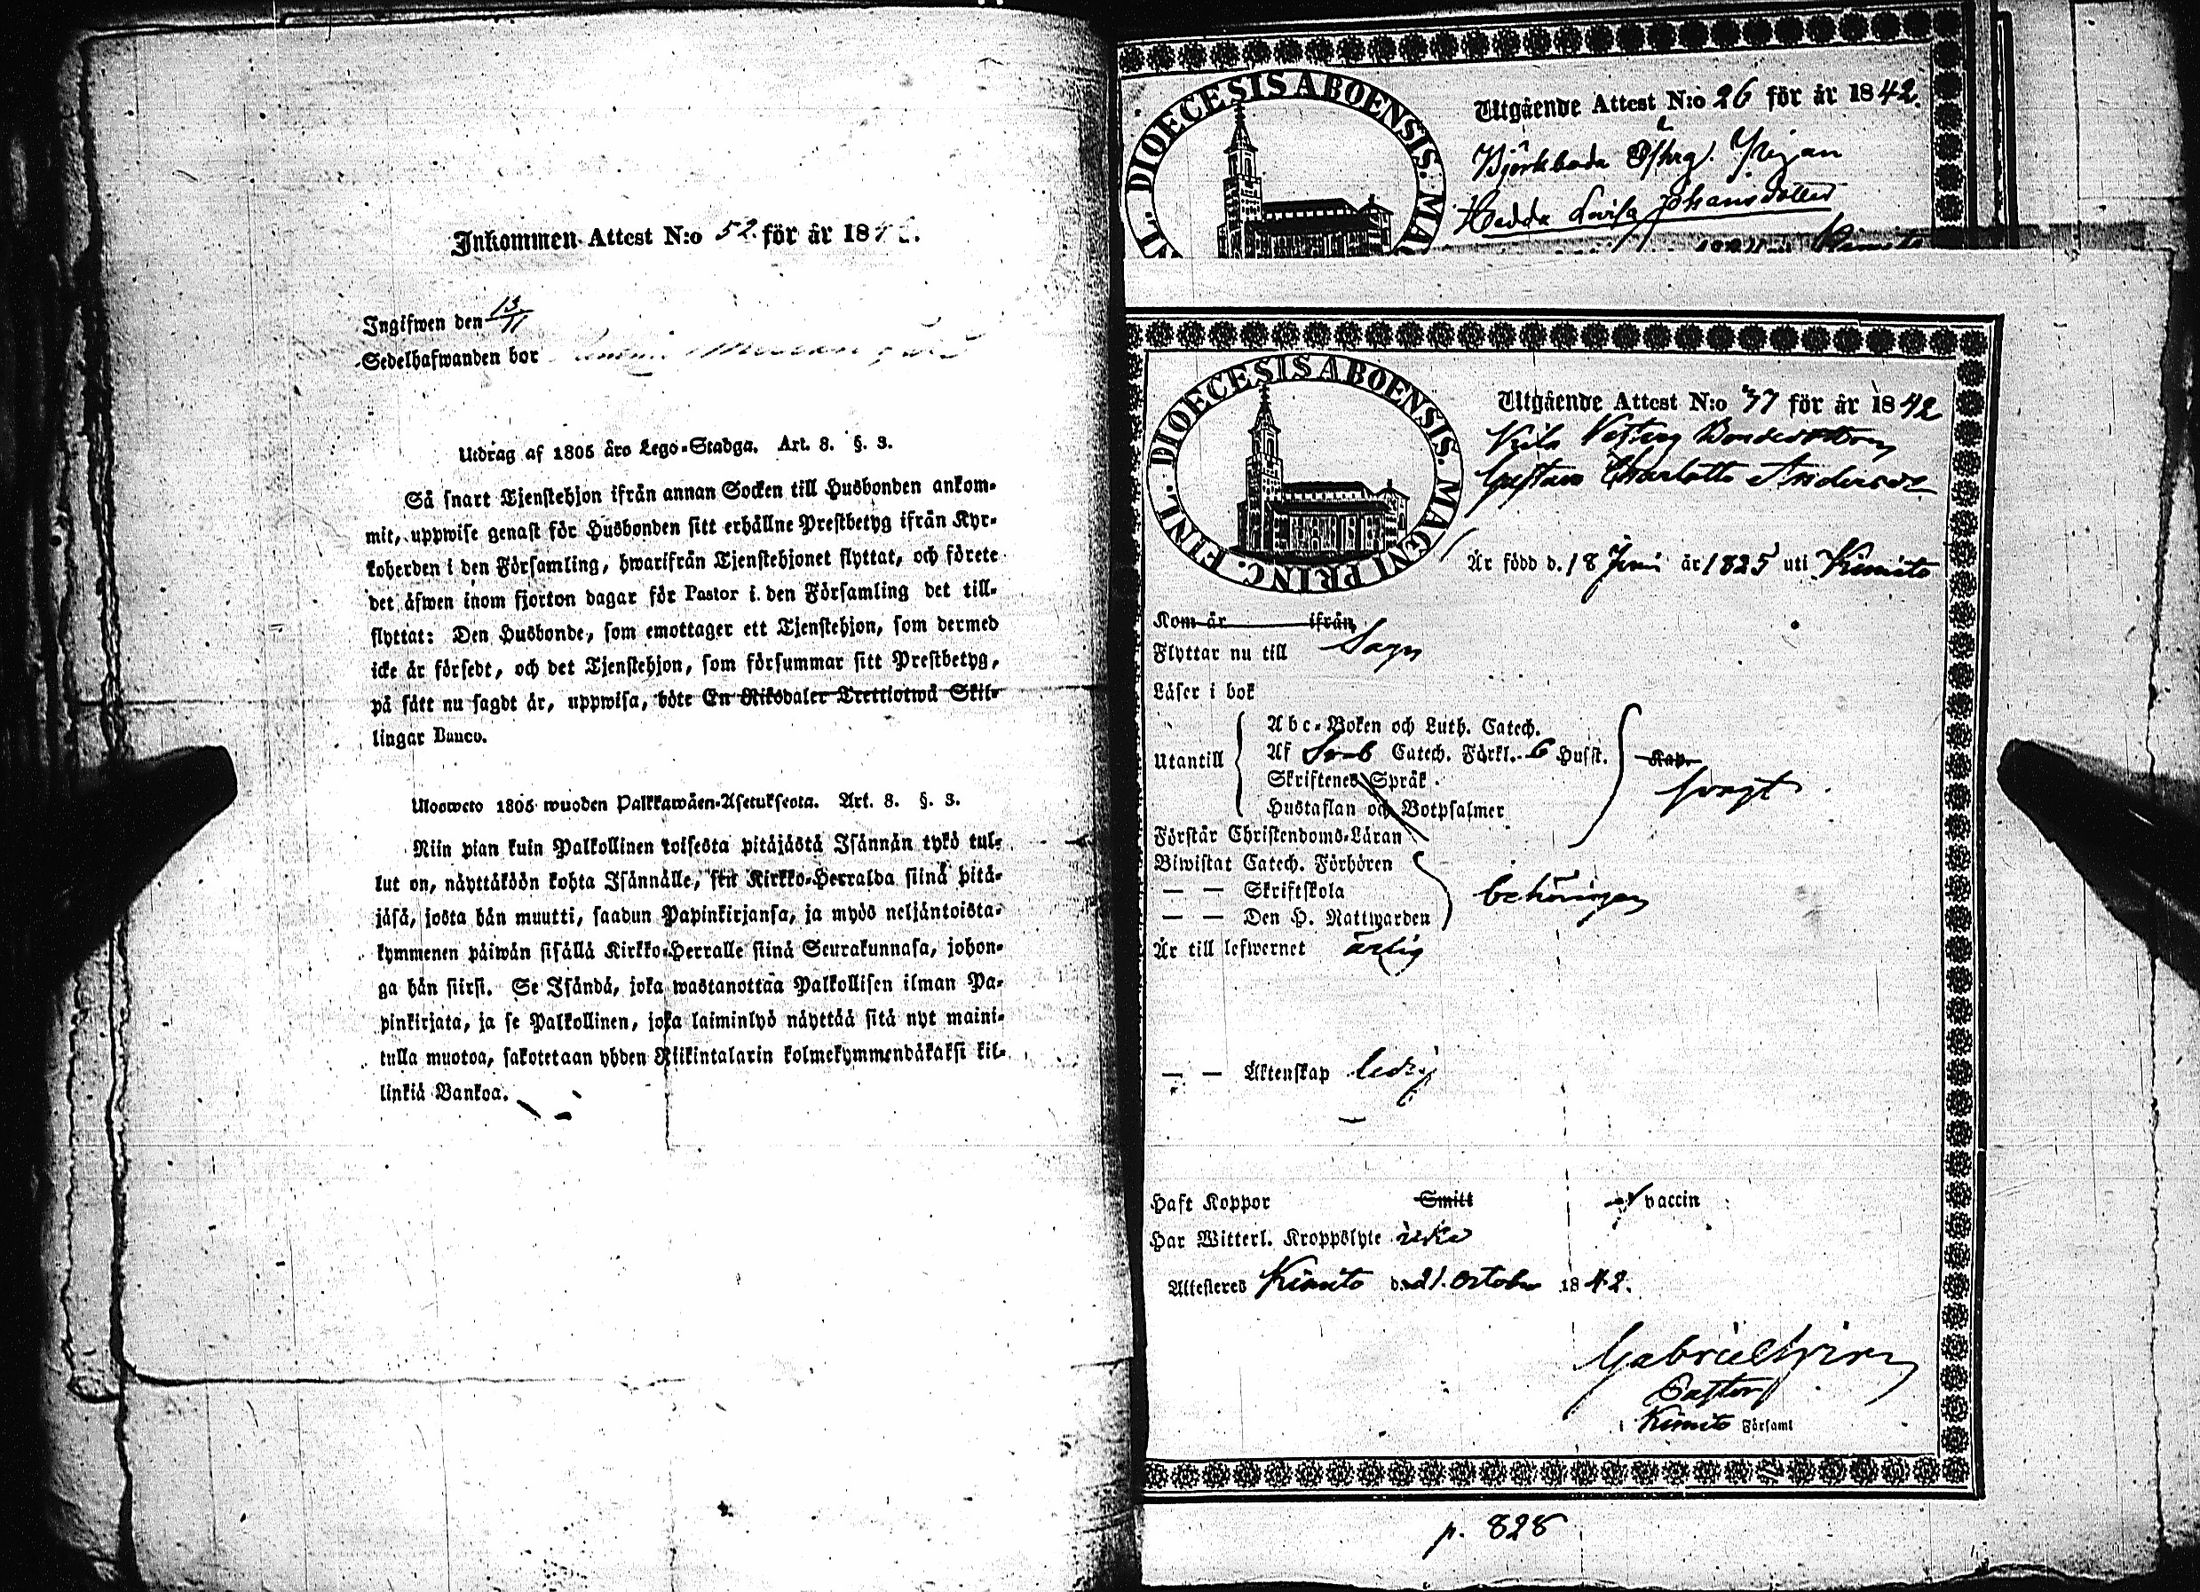 Inkommen Attest N:o 52 för år 18
Ingifwen den 13/11
Sedelhafwanden bor
Utdrag af 1805 års Lego-Stadga. Art. 8. §. 3.
Så snart Tjenstehjon ifrån annan Socken till Husbonden ankom-
mit, uppwise genast för Husbonden sitt erhållne Prestbetyg ifrån Kyr-
koherden i den Församling, hwarifrån Tjenstehjonet flyttat, och förete
det äfwen inom fjorton dagar för Pastor i den Församling det till-
flyttat: Den Husbonde, som emottager ett Tjenstehjon, som dermed
icke är försedt, och det Tjenstehjon, som försummar sitt Prestbetyg,
på sätt nu sagdt är, uppwisa, böte En Riksdaler Trettiotwå Skil-
lingar Banco.
Uloswcto 1805 wuoden Palkkawäen-Asetuksesta. Art. 8. §. 3.
Niin pian kuin Palkollinen toisesta pitäjästä Isännän tykö tul-
lut on, näyttäköön kohta Isännälle, sen Kirkko-Herralda siinä pitä-
jäsä, josta hän muutti, saadun Papinkirjansa, ja myös neljäntoista-
kymmenen päiwän sisällä Kirkko-Herralle siinä Seurakunnasa, johon-
ga hän siirsi. Se Isändä, joka wastanottaa Palkollisen ilman Pa-
pinkirjata, ja se Palkollinen, joka laiminlyö näyttää sitä nyt maini-
tulla muotoa, sakotetaan yhden Riikintalarin kolmekymmendäkaksi kil-
linkiä Bankoa.
DIOECESIS ABOENSIS. MA
Utgående Attest N:o 26 för år 1842.
Björkboda Pigan
Hedda Lovisa Johansdotter
Kimito
DIOECESIS ABOENSIS. MAGNI PRINC. FINL.
Utgående Attest N:o 37 för år 1842
Gustava Charlotta
Är född d. 18 Juni år 1825 uti Kimito
Kom år ifrån
Flyttar nu till Sagu
Läser i bok
Utantill
Abc-Boken och Luth. Catech.
Af Sveb Catech. Förkl. 6 Hufst.
Skriftenes Språk
Hustaflan och Botpsalmer
Kap.
svagt
Förstår Christendoms-Läran
Biwistat Catech. Förhören
— — Skriftskola
— — Den H. Nattwarden
behörigen
Är till lefwernet ärlig
— — Äktenskap ledig
Haft Koppor Smitt vaccin
Har Witterl. Kroppslyte icke
Attesteres Kimito d. 21. October 1842.
Gabriel
Pastor
i Kimito Församl
p. 828